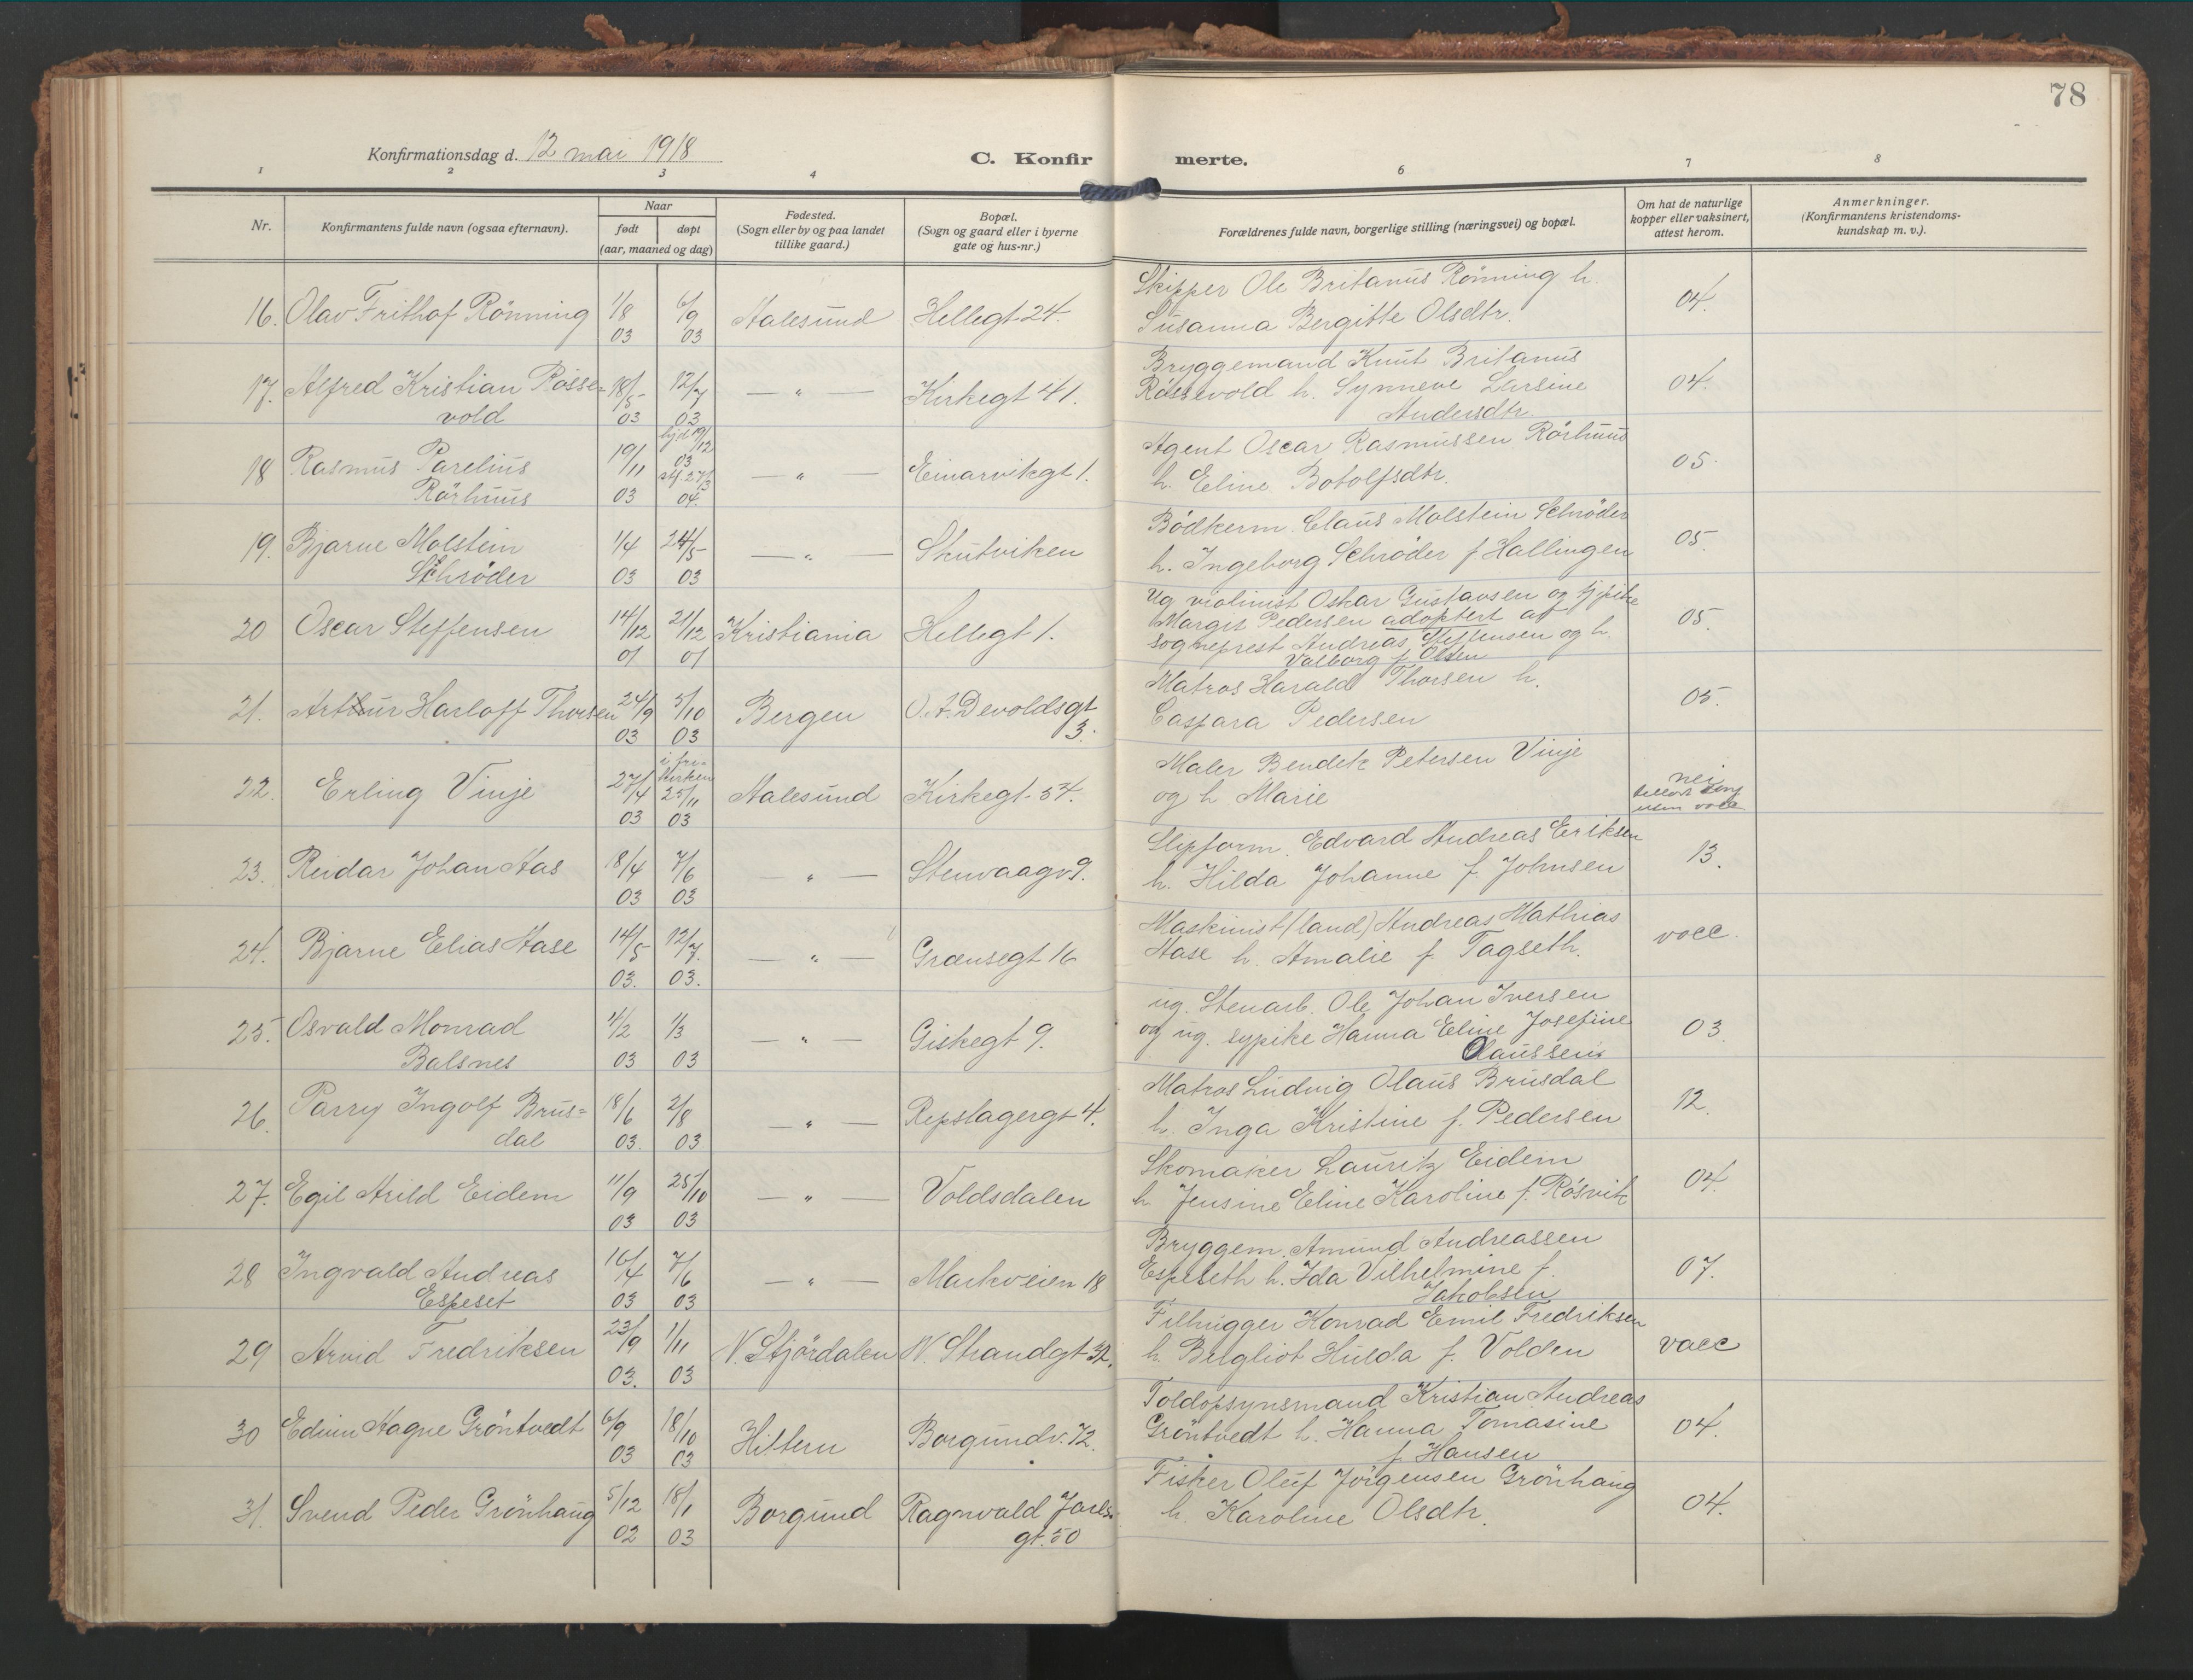 78
Konfirmationsdag d. 12 mai 1918
C. Konfirmerte.
1 2 3 4 6 7 8
Nr.
Konfirmantens fulde navn (ogsaa efternavn).
Naar
født døpt
(aar, maaned og dag)
Fødested.
(Sogn eller by og paa landet
tillike gaard.)
Bopæl.
(Sogn og gaard eller i byerne
gate og hus-nr.)
Forældrenes fulde navn, borgerlige stilling (næringsvei) og bopæl.
Om hat de naturlige
kopper eller vaksinert,
attest herom.
Anmerkninger.
(Konfirmantens kristendoms-
kundskap m. v.).
16. Olav Frithof Rönning 1/8 03 6/9 03 Aalesund Hellegt 24.
Skipper Ole Britanus Rönning h.
Susanna Bergitte Olsdtr. 04.
17. Alfred Kristian Rösse=
vold 18/5 03 12/7 03 — " — Kirkegt 41.
Bryggemand Knut Britanus
Røssevold h. Synneve Larsine
Andersdtr. 04.
18 Rasmus Parelius
Rörhuus 19/11 03 hjd 19/12 03 stf. 27/3 04. — " — Einarvikgt 1.
Agent Oscar Rasmussen Rörhuus
h. Eline Botolfsdtr. 05.
19. Bjarne Molstein
Schröder 1/4 03 24/5 03 — " — Skutviken
Bödkerm. Claus Molstein Schröder
h. Ingeborg Schröder f. Hallingen 05.
20 Oscar Steffensen 14/12 01 21/12 01 Kristiania Hellegt 1.
Ug violinist Oskar Gustavsen og tjpike
Margit Pedersen adoptert af
sogneprest Andreas Steffensen og h.
Valborg f. Olsen 05.
21. Arthur Harloff Thorsen 24/9 03 5/10 03 Bergen O. A. Devoldsgt
3.
Matros Harald Thorsen h.
Caspara Pedersen 05.
22. Erling Vinje 27/4 03 i fri-
kirken 25/11 03 Aalesund Kirkegt 54.
Maler Bendik Petersen Vinje
og h Marie nei
uten vacc
23. Reidar Johan Aas 18/4 03 7/6 03 — " — Stenvaagv 9.
Slipform. Edvard Andreas Eriksen
h. Hilda Johanne f. Johnsen 13.
24. Bjarne Elias Aase 14/5 03. 12/7. 03. — " — Grænsegt 16
Maskinist (land) Andreas Mathias
Aase h. Amalie f Tagseth. vacc.
25. Osvald Monrad
Balsnes 4/2 03 1/3 03 — " — Giskegt 9.
ug. Stenarb. Ole Johan Iversen
og ug. sypike Hanna Eline Josefine
Olaussen 03.
26. Parry Ingolf Brus=
dal 18/6 03. 2/8 03 — " — Repslagergt 4.
Matros Ludvig Olaus Brusdal
h. Inga Kristine f. Pedersen 12.
27. Egil Arild Eidem 11/9 03 25/10 03 — " — Voldsdalen
Skomaker Lauritz Eidem
h Jensine Eline Karoline f. Røsvik 04.
28 Ingvald Andreas
Espeset 16/4 03 7/6 03 — " — Markveien 18
Bryggem. Amund Andreassen
Espeseth h. Ida Vilhelmine f.
Jakobsen 07.
29 Arvid Fredriksen 23/9 03. 1/11 03 N. Stjördalen N. Strandgt 32.
Filhugger Konrad Emil Fredriksen
h. Bergliot Hulda f. Volden vacc
30 Edvin Hagne Gröntvedt 6/9 03 18/10 03 Hittern Borgundv. 72.
Toldopsynsmand Kristian Andreas
Gröntvedt h. Hanna Tomasine
f Hansen 04.
31. Svend Peder Grönhaug 5/12 02 18/1 03 Borgund Ragnvald Jarls.
gt. 50
Fisker Oluf Jörgensen Grönhaug
h. Karoline Olsdtr. 04.